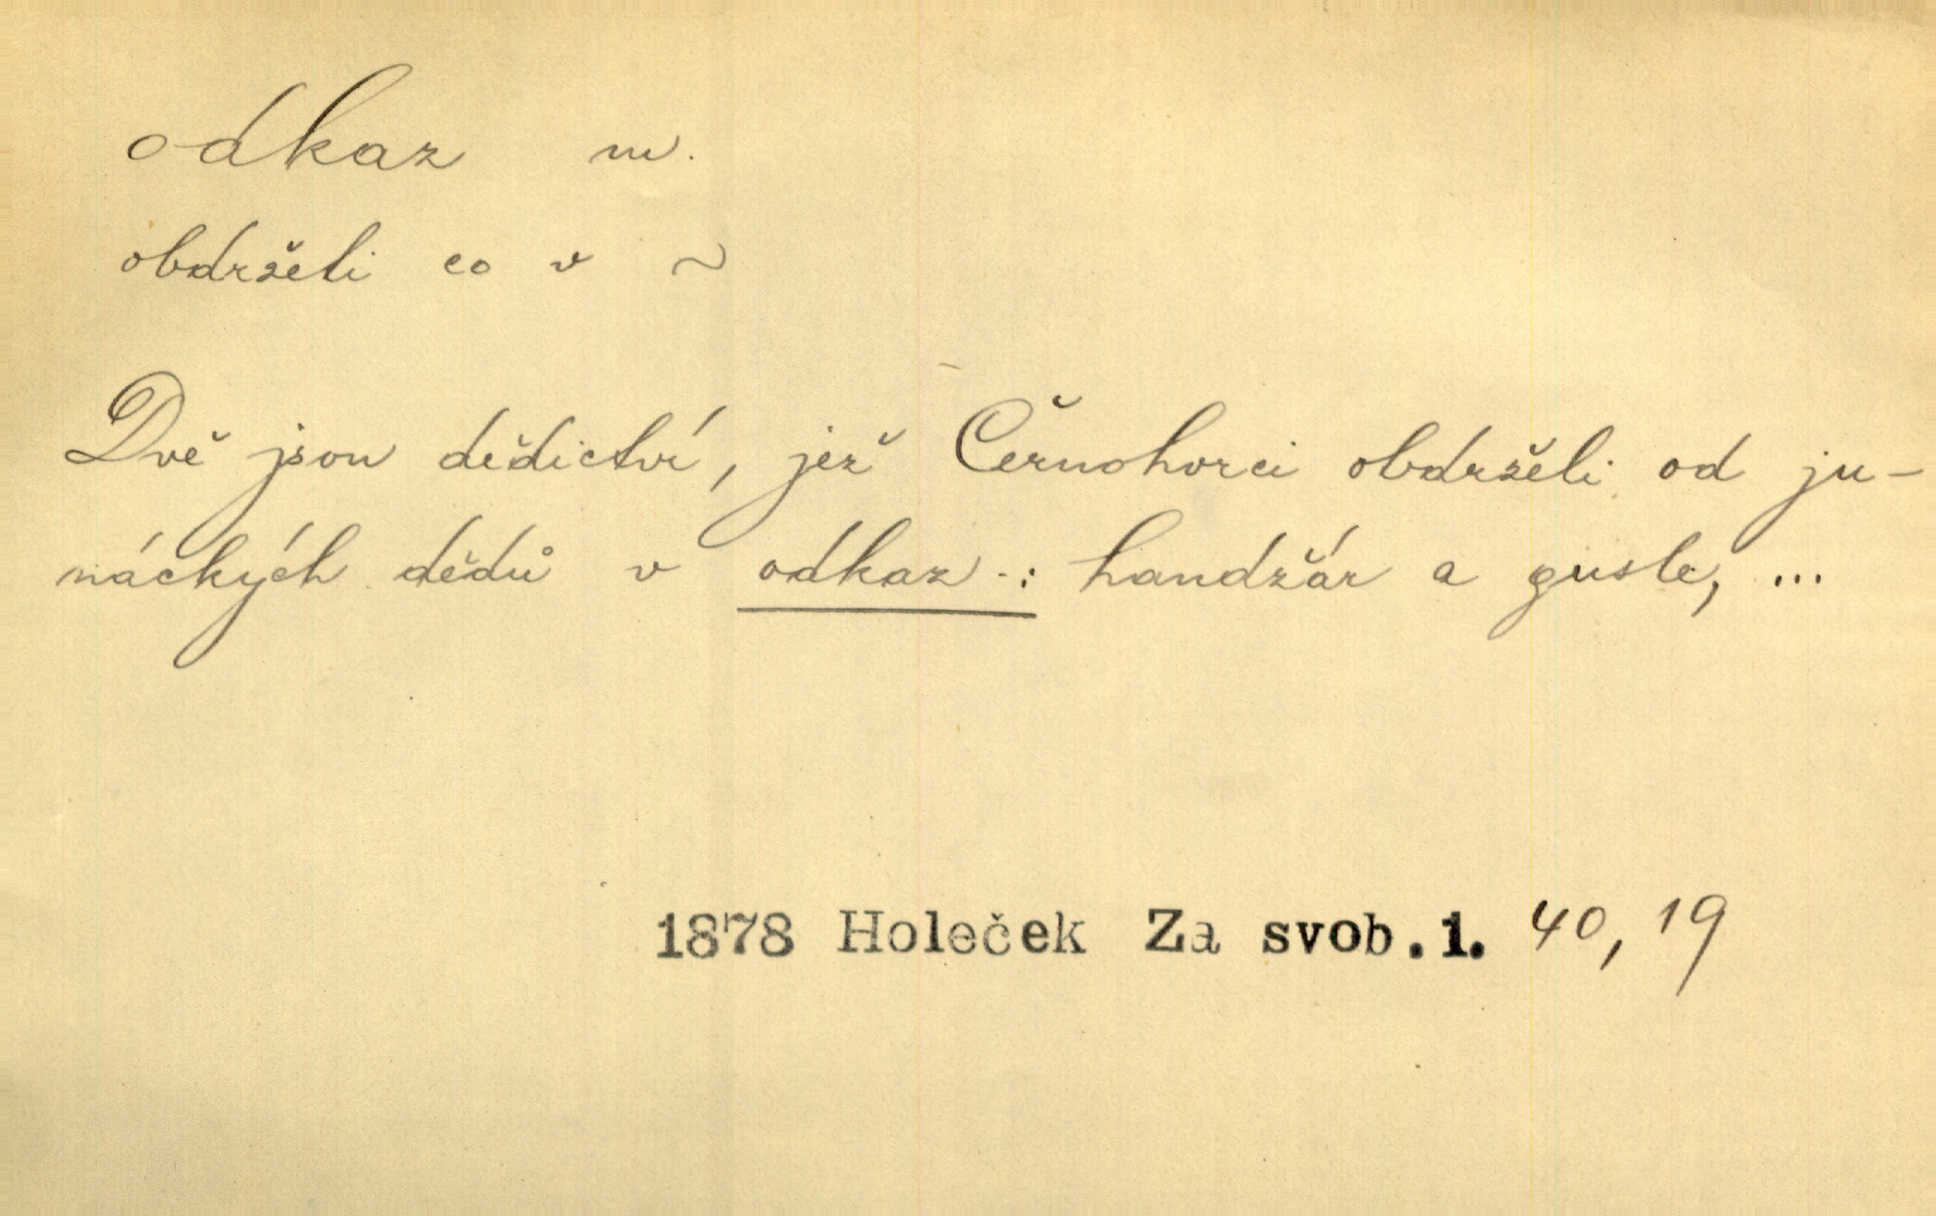 odkaz m.
obdrželi co v ~
Dvě jsou dědictví, jež Černohorci obdrželi od ju-
náckých dědů v odkaz -: handžár a gusle, ...
1878 Holeček Za svob. 1. 40, 19